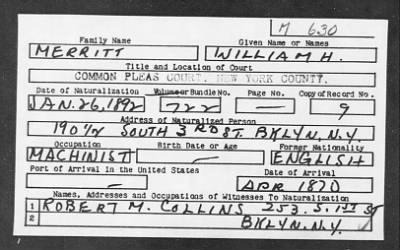 M 630
Family Name Given Name or Names
MERRITT WILLIAM H.
Title and Location of Court
COMMON PLEAS COURT, NEW YORK COUNTY.
Date of Naturalization Volume or Bundle No. Page No. Copy of Record No.
JAN. 26, 1892 722 — 9
Address of Naturalized Person
190 1/2 SOUTH 3RD ST. BKLYN, N.Y.
Occupation Birth Date or Age Former Nationality
MACHINIST — ENGLISH
Port of Arrival in the United States Date of Arrival
— APR 1870
Names, Addresses and Occupations of Witnesses To Naturalization
1 ROBERT M. COLLINS 253 S. 1ST ST
2 BKLYN. N.Y.